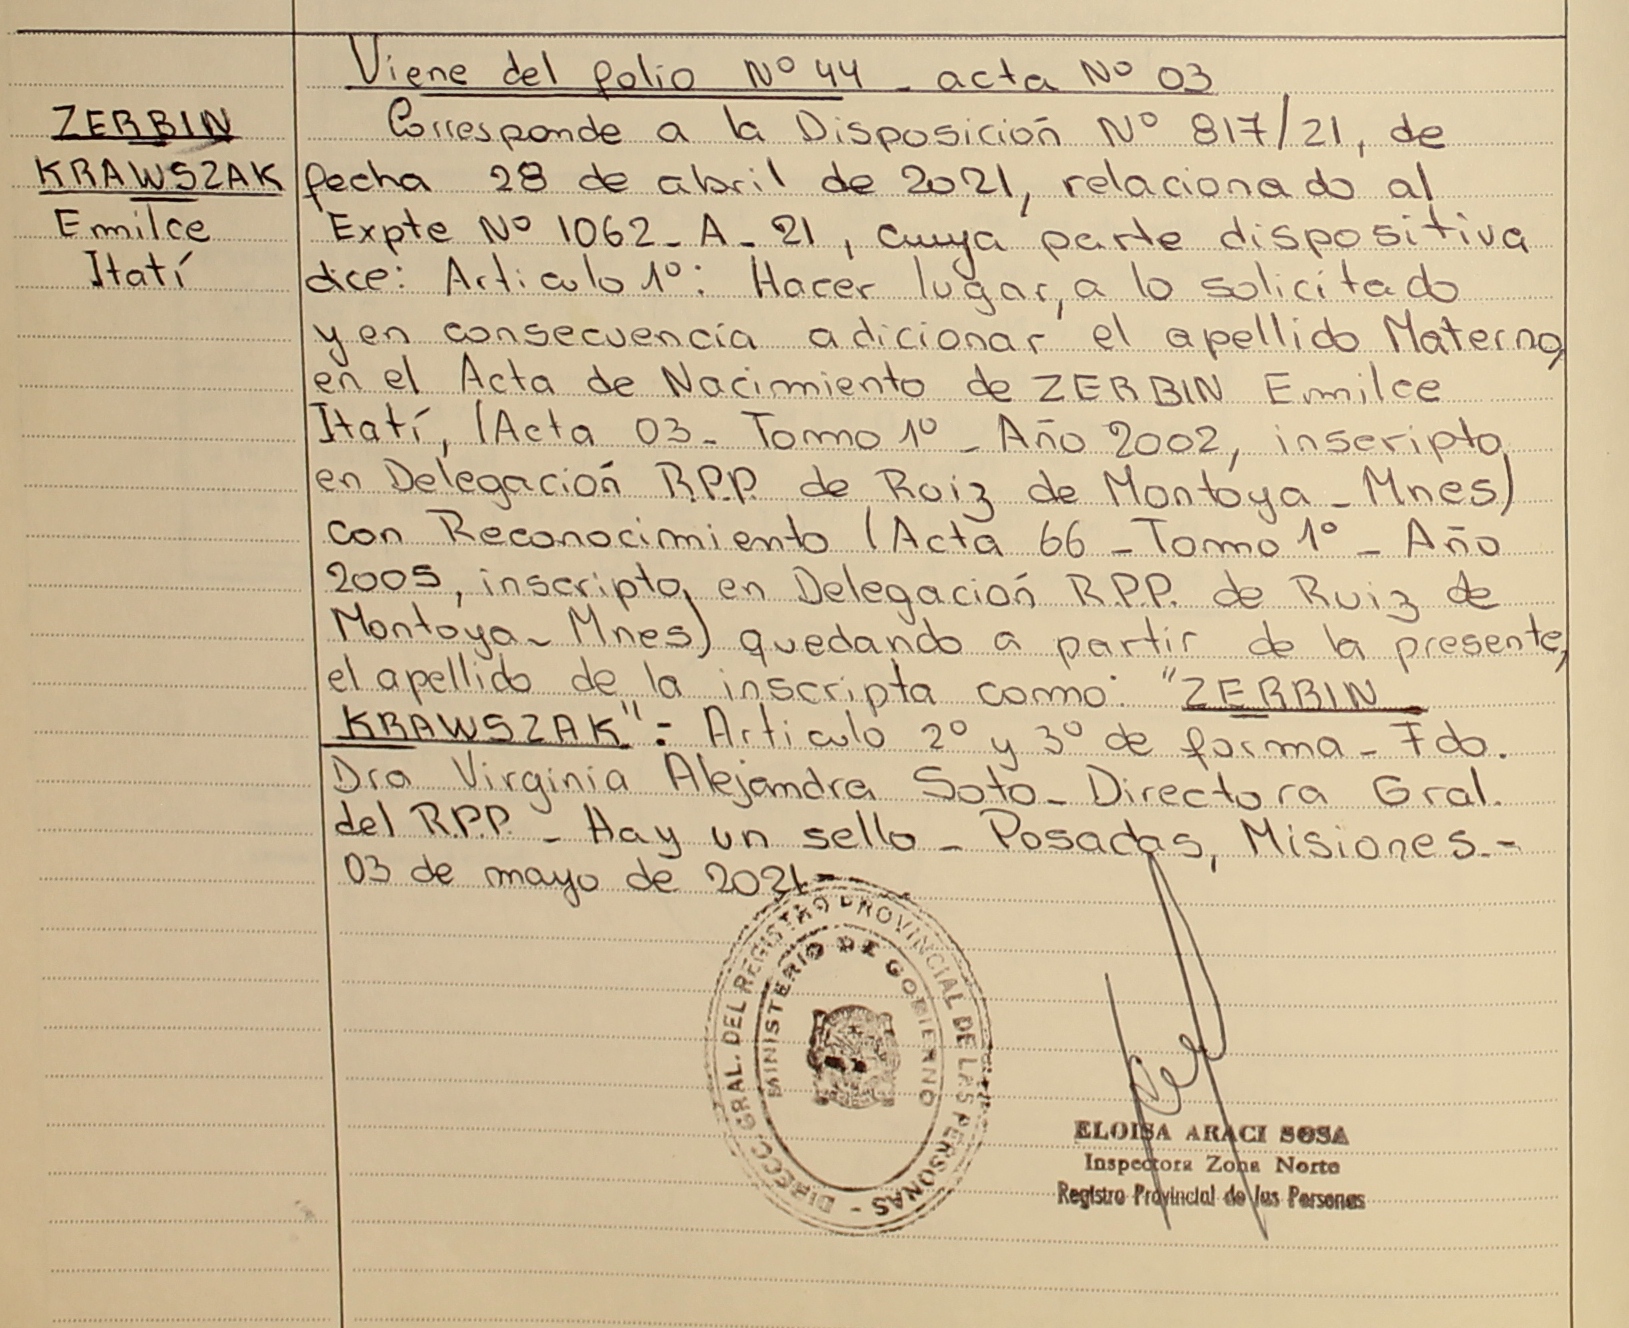 Viene del folio Nº 44 - acta Nº 03
ZERBIN
KRAWSZAK
Emilce
Itatí
Corresponde a la Disposición Nº 817/21, de
fecha 28 de abril de 2021, relacionado al
Expte Nº 1062-A-21, cuya parte dispositiva
dice: Articulo 1º: Hacer lugar, a lo solicitado
y en consecuencia adicionar el apellido Materno,
en el Acta de Nacimiento de ZERBIN Emilce
Itatí, (Acta 03- Tomo 1º - Año 2002, inscripto,
en Delegación R.P.P. de Ruiz de Montoya - Mnes)
con Reconocimiento (Acta 66 - Tomo 1º - Año
2005, inscripto, en Delegación R.P.P. de Ruiz de
Montoya - Mnes) quedando a partir de la presente,
el apellido de la inscripta como: "ZERBIN
KRAWSZAK":- Articulo 2º y 3º de forma - Fdo.
Dra Virginia Alejandra Soto - Directora Gral.
del R.P.P. - Hay un sello - Posadas, Misiones.-
03 de mayo de 2021-
DIRECC. GRAL. DEL REGISTRO PROVINCIAL DE LAS PERSONAS -
MINISTERIO DE GOBIERNO
ELOISA ARACI SOSA
Inspectora Zona Norte
Registro Provincial de las Personas